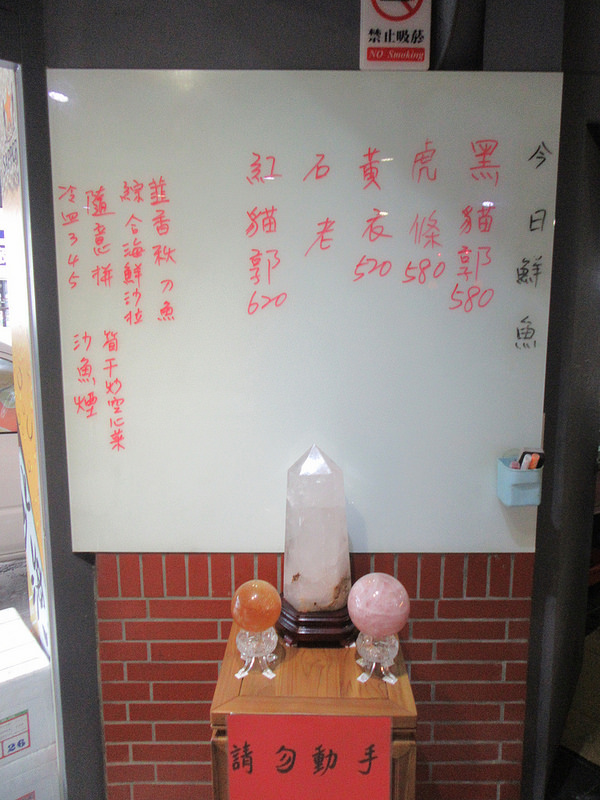 禁止吸菸
NO Smoking
今日鮮魚
黑貓郭580
虎條580
黃衣520
石老
紅貓郭620
韭香秋刀魚
綜合海鮮沙拉
隨意拼
冷皿345
筍干炒空心菜
沙魚煙
請勿動手
26